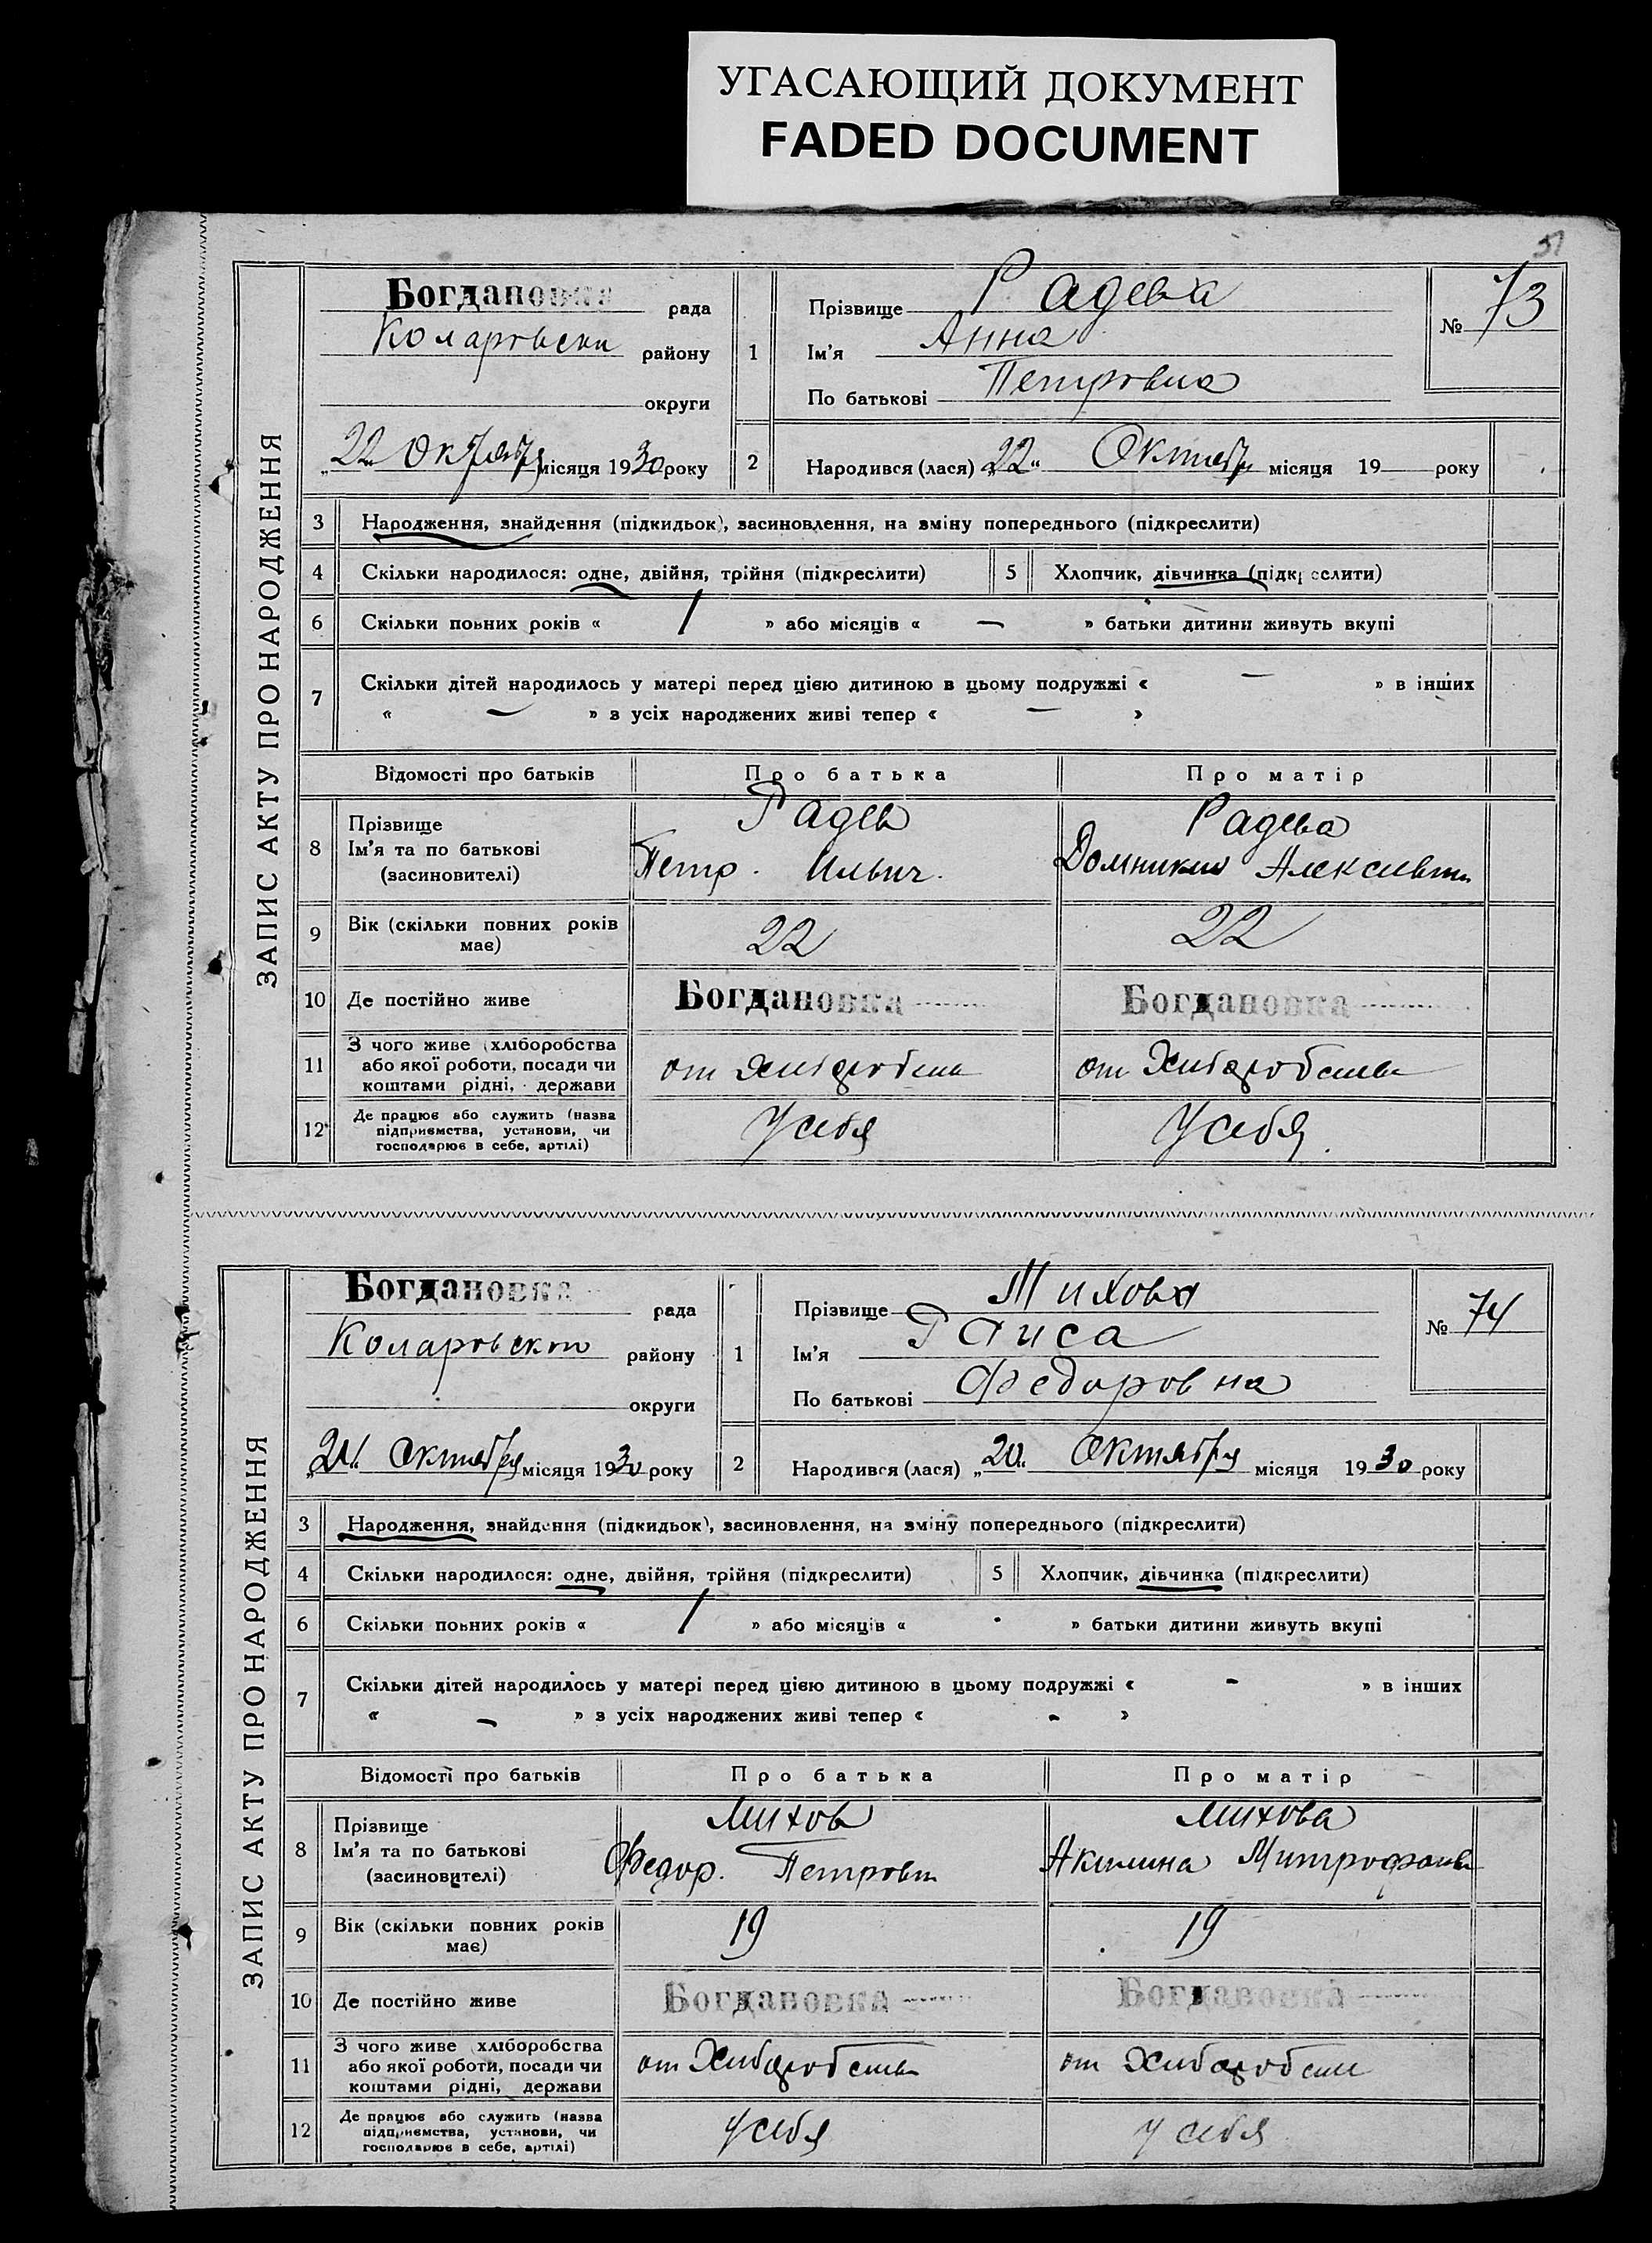 УГАСАЮЩИЙ ДОКУМЕНТ
FADED DOCUMENT
ЗАПИС АКТУ ПРО НАРОДЖЕННЯ
Богдановка рада
Коларовски району
округи
„22“ Октября місяця 1930 року
1 Прізвище Радева
Ім'я Анна
По батькові Петровна
№ 73
2 Народився (лася) „22“ Октября місяця 19 — року
3 Народження, знайдення (підкидьок), засиновлення, на зміну попереднього (підкреслити)
4 Скільки народилося: одне, двійня, трійня (підкреслити) 5 Хлопчик, дівчинка (підкреслити)
6 Скільки повних років « 1 » або місяців « — » батьки дитини живуть вкупі
7 Скільки дітей народилось у матері перед цією дитиною в цьому подружжі « — » в інших
« — » з усіх народжених живі тепер « — »
Відомості про батьків Про батька Про матір
8 Прізвище Радев Радева
Ім'я та по батькові Петр. Ильич. Домникия
(засиновителі)
9 Вік (скільки повних років має) 22 22
10 Де постійно живе Богдановка Богдановка
11 З чого живе (хліборобства
або якої роботи, посади чи от от
коштами рідні, держави
12 Де працює або служить (назва
підприємства, установи, чи У себя У себя.
господарює в себе, артілі)
ЗАПИС АКТУ ПРО НАРОДЖЕННЯ
Богдановка рада
Коларовского району
округи
„21“ Октября місяця 1930 року
1 Прізвище Михова
Ім'я Раиса
По батькові Федоровна
№ 74
2 Народився (лася) „20“ Октября місяця 1930 року
3 Народження, знайдення (підкидьок), засиновлення, на зміну попереднього (підкреслити)
4 Скільки народилося: одне, двійня, трійня (підкреслити) 5 Хлопчик, дівчинка (підкреслити)
6 Скільки повних років « 1 » або місяців « » батьки дитини живуть вкупі
7 Скільки дітей народилось у матері перед цією дитиною в цьому подружжі « - » в інших
« - » з усіх народжених живі тепер « - »
Відомості про батьків Про батька Про матір
8 Прізвище Михов Михова
Ім'я та по батькові Федор. Петрович Акилина
(засиновителі)
9 Вік (скільки повних років має) 19 19
10 Де постійно живе Богдановка Богдановка
11 З чого живе (хліборобства
або якої роботи, посади чи от от
коштами рідні, держави
12 Де працює або служить (назва
підприємства, установи, чи У себя у себя
господарює в себе, артілі)